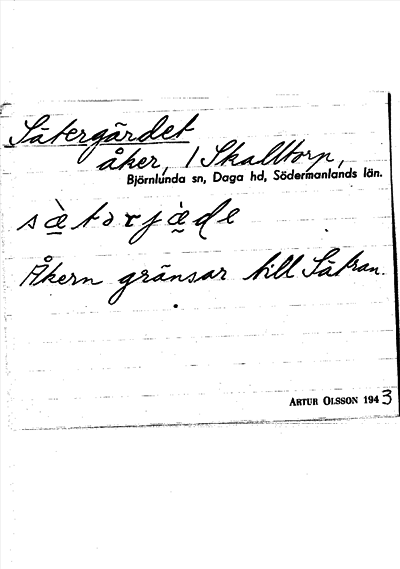 Sätergärdet
åker, 1 Skalltorp,
Björnlunda sn, Daga hd, Södermanlands län.
sæ̀tərjæ̀ḍe
Åkern gränsar till Sätran.
ARTUR OLSSON 1943